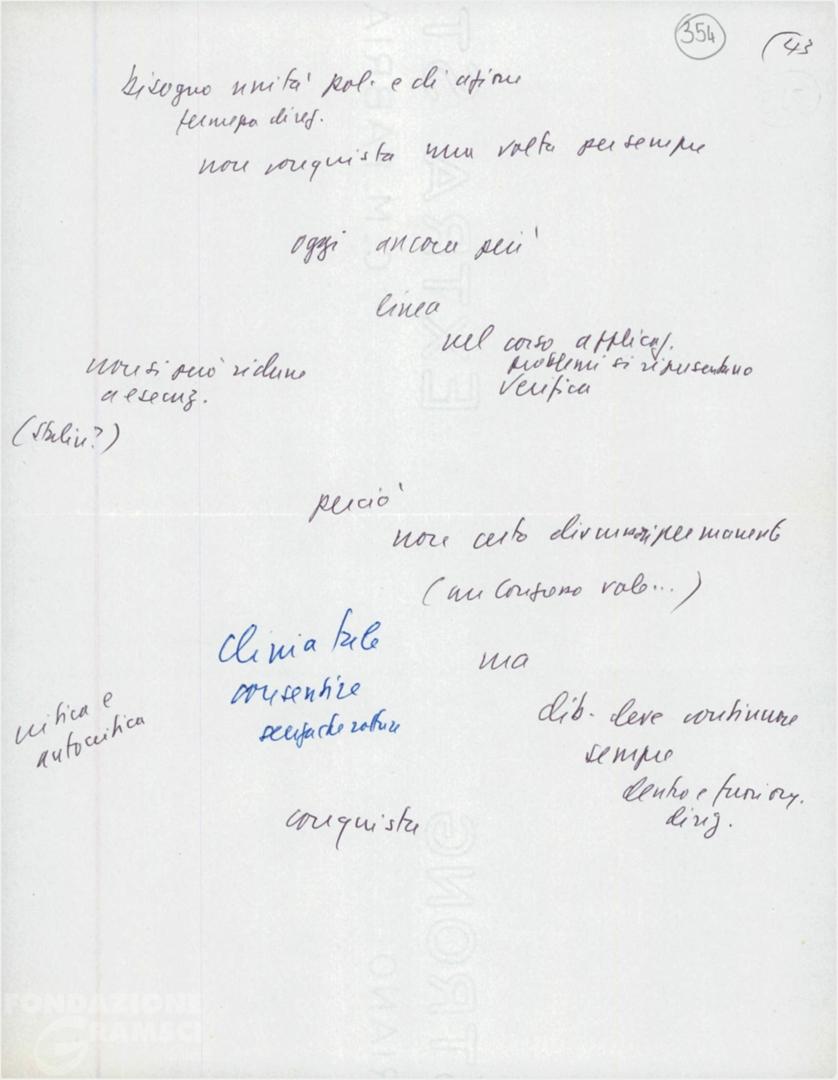 354
(43
bisogno unità pol. e di azione
fermezza direz.
non conquista una volta per sempre
oggi ancora più
linea
nel corso applicaz.
problemi si ripresentano
verifica
non si può ridurre
a esecuz.
(Stalin?)
perciò
non certo discussioni permanenti
(un Congresso vale...)
clima tale
consentire
senza che rotture
ma
dib. deve continuare
sempre
dentro e fuori org.
dirig.
critica e
autocritica
conquista
FONDAZIONE
GRAMSCI